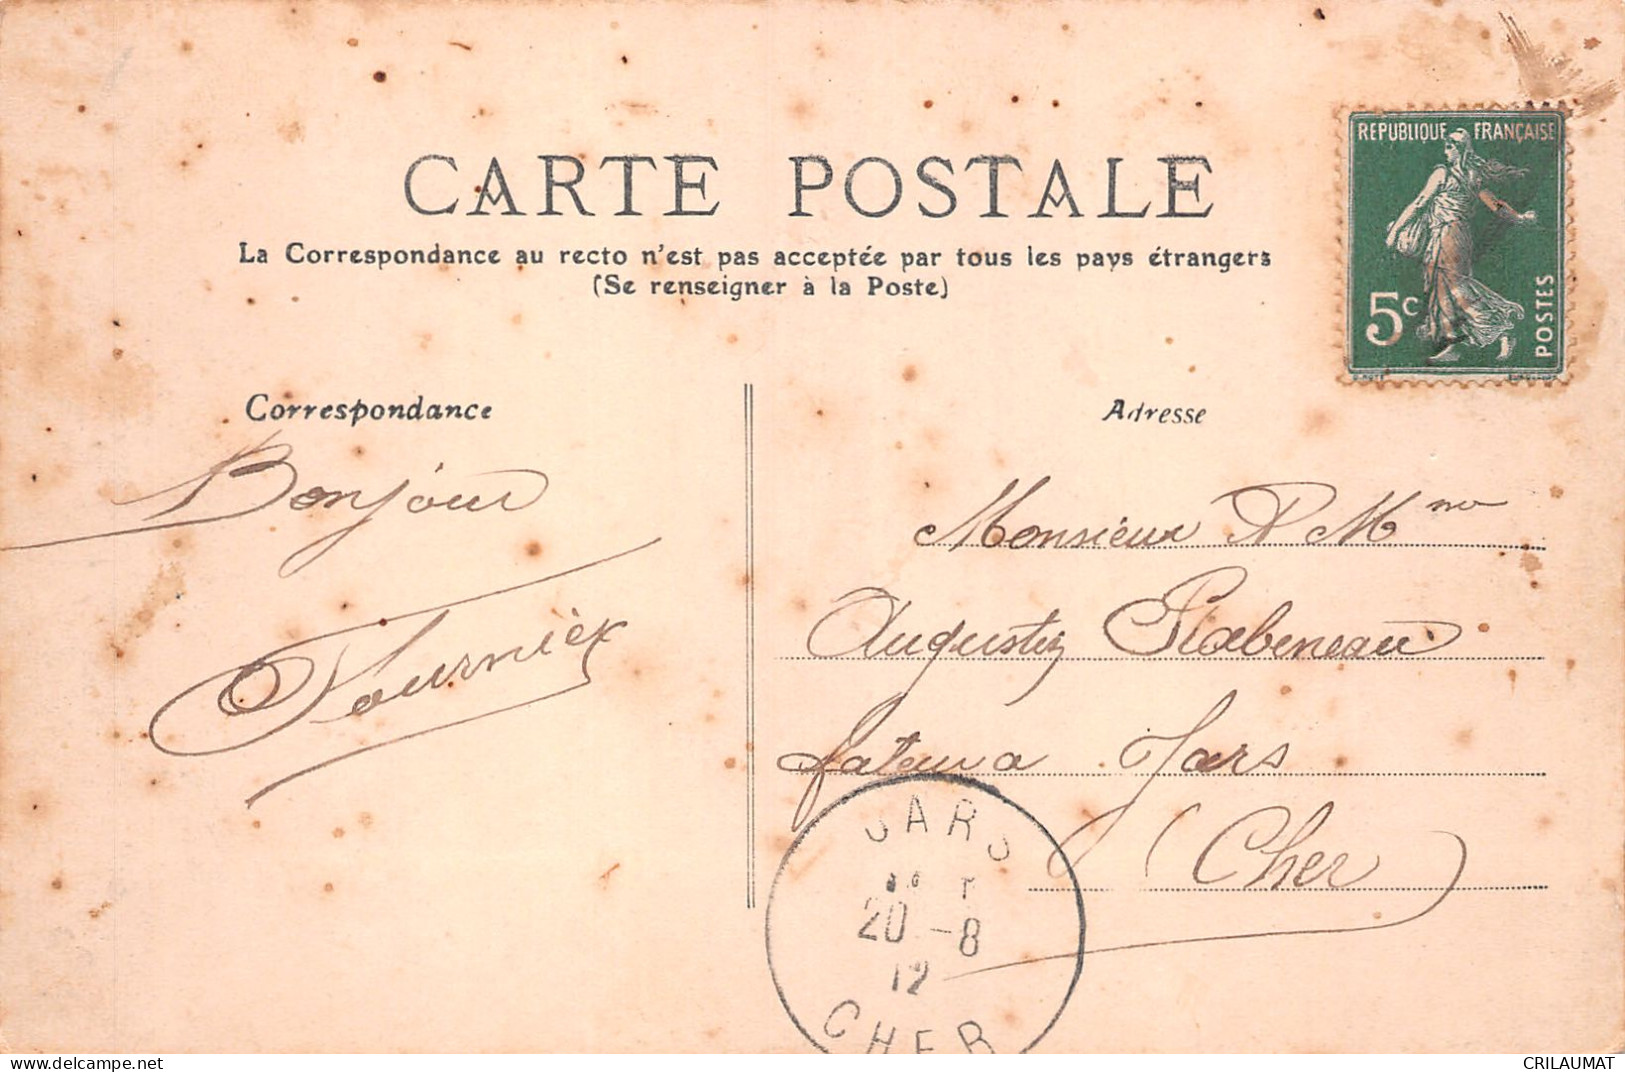 CARTE POSTALE
La Correspondance au recto n'est pas acceptée par tous les pays étrangers
(Se renseigner à la Poste)
REPUBLIQUE FRANÇAISE
5c
POSTES
Correspondance
Bonjour
Fournier
Adresse
Monsieur
Rabeneau
a Jars
(Cher)
JARS
20 -8
12
CHER
delcampe.net
CRILAUMAT